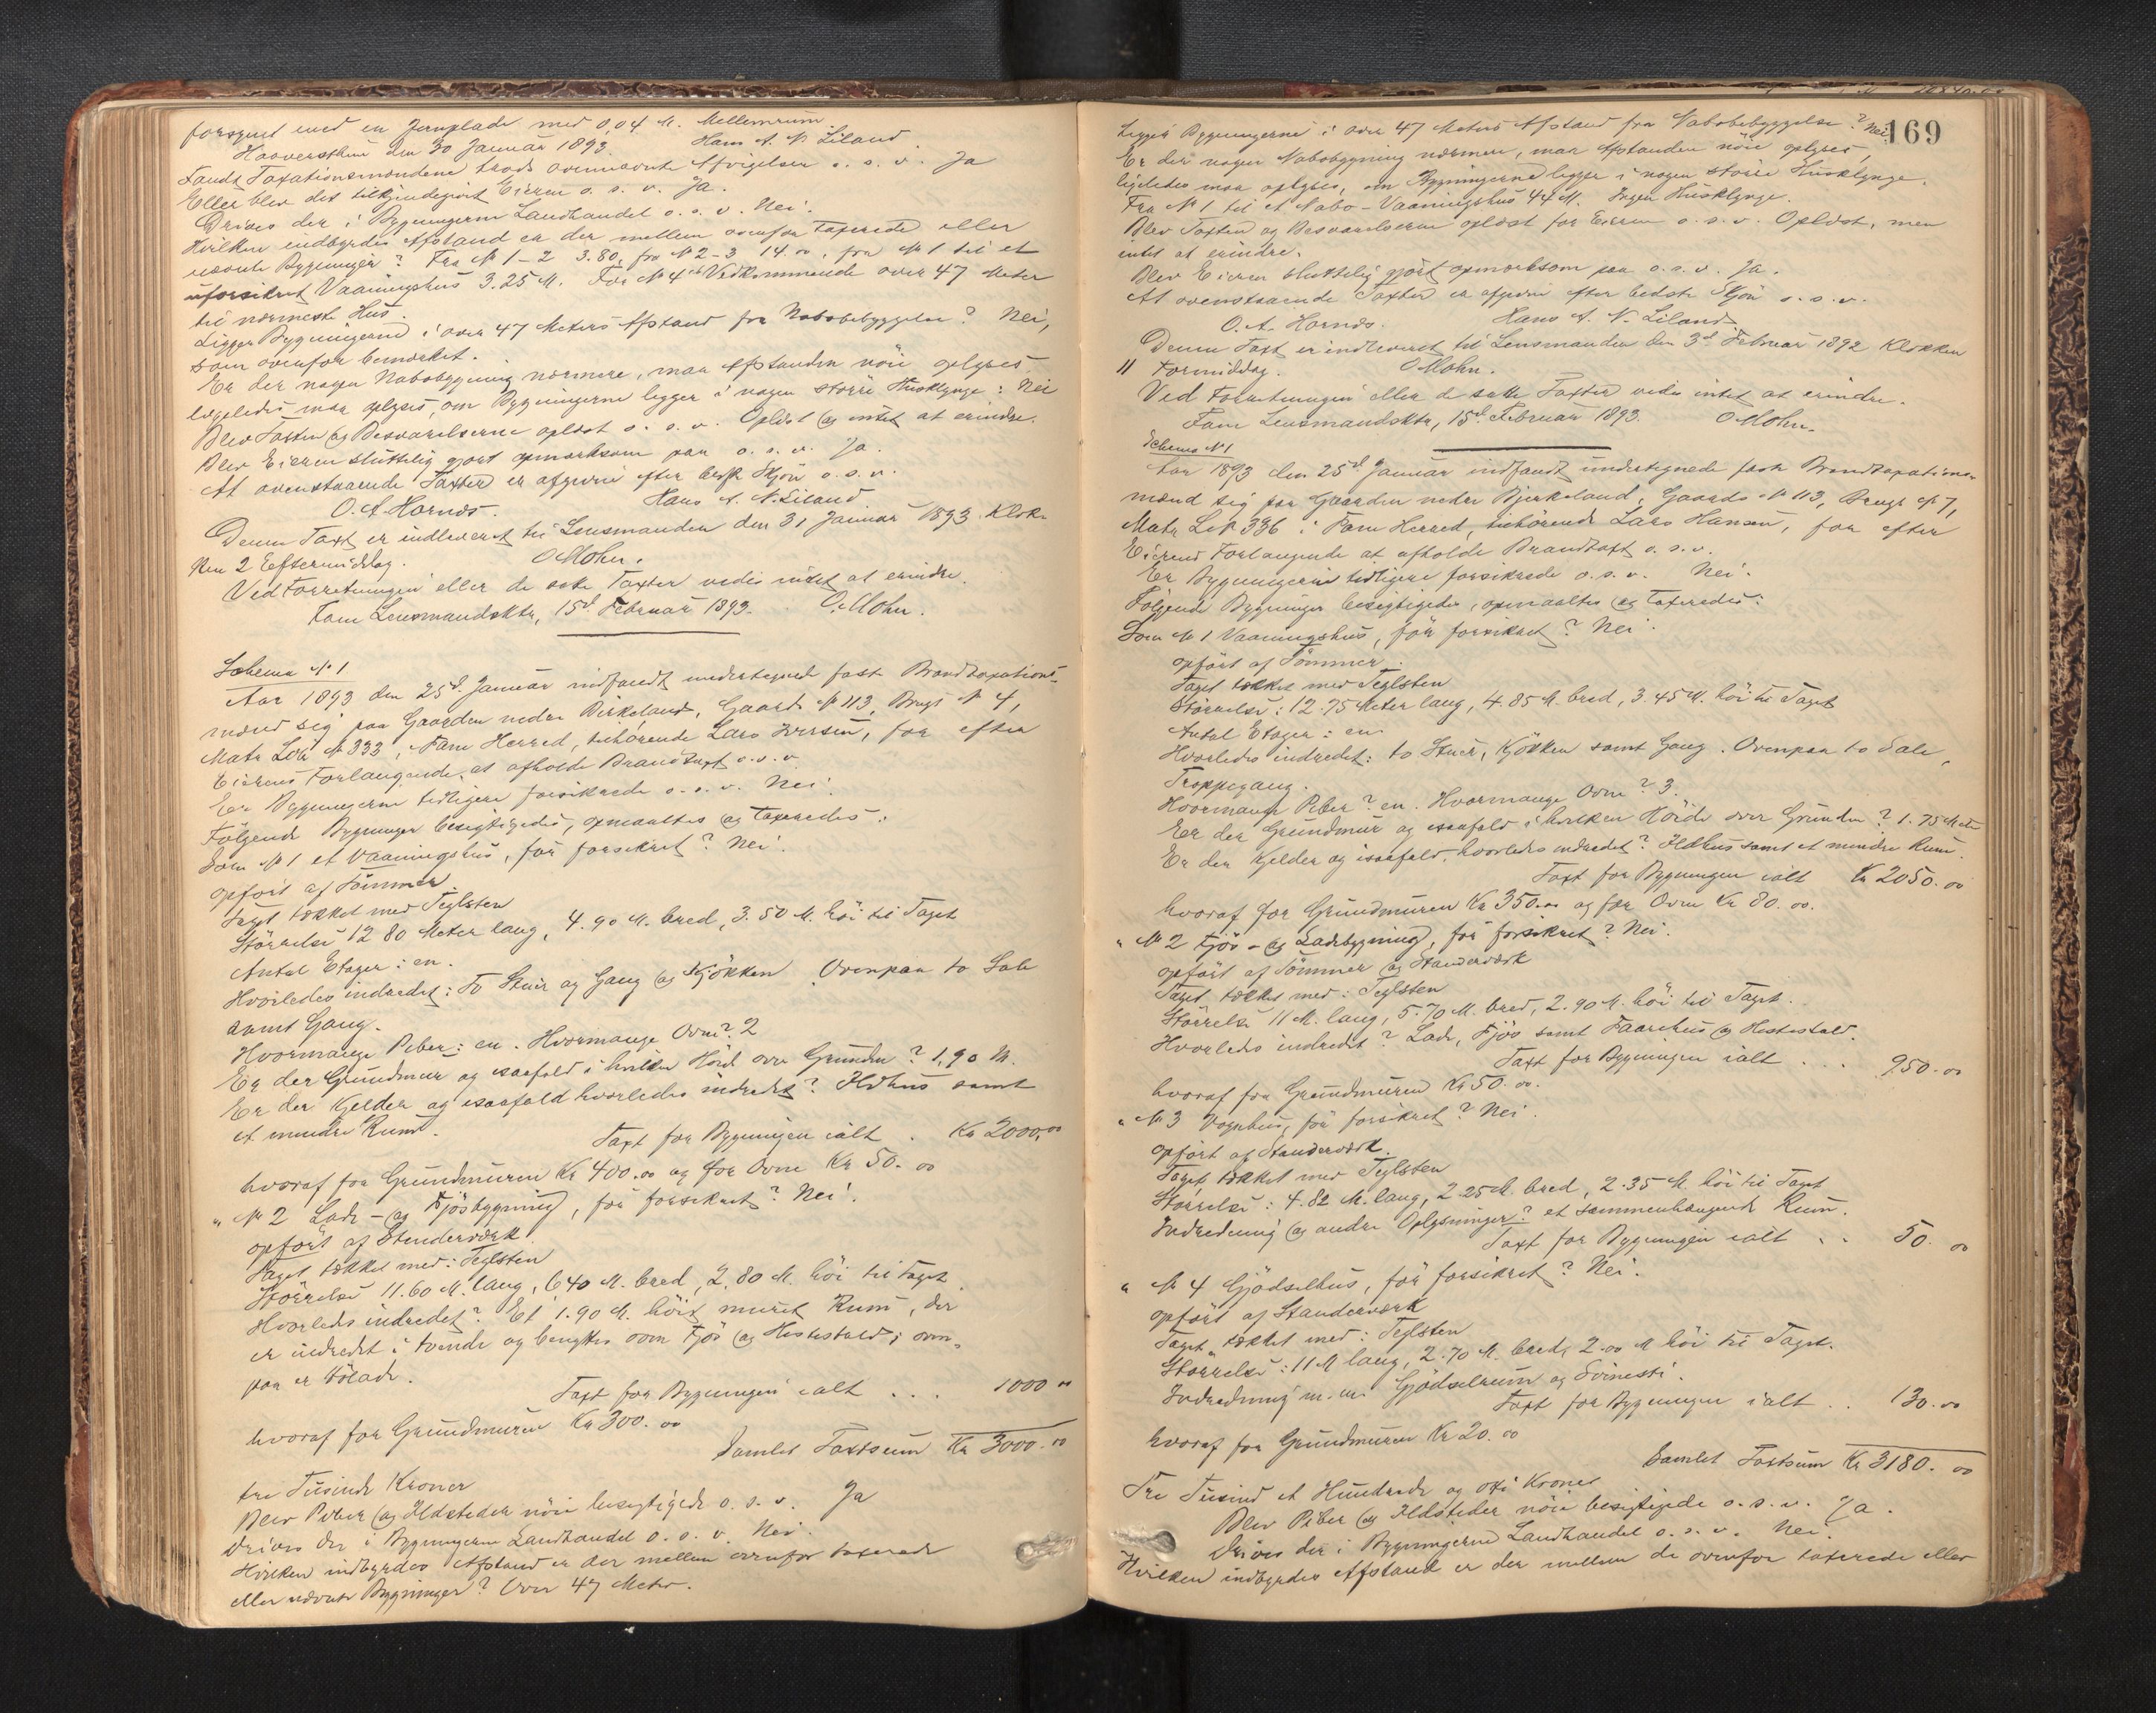 forsynet med en Jernplade med 0,04 M. Mellemrum.
Haaversthun den 30 Januar 1893. Hans A. N. Liland.
Fandt Taxationsmændene trods ovennævnte Afvigelser o. s. v. Ja
Eller blev det tilkjendegivet Eieren o. s. v. Ja.
Drives der i Bygningerne Landhandel o. s. v. Nei.
Hvilken indbyrdes Afstand er der mellem ovenfor taxerede eller
nævnte Bygninger? Fra № 1-2 3.80, fra № 2-3 14.00, fra № 1 til et
uforsikret Vaaningshus 3.25 M. For № 4 Vedkommende over 47 Meter
til nærmeste Hus.
Ligger Bygningerne i over 47 Meters Afstand fra Nabobebyggelse? Nei,
som ovenfor bemærket.
Er der nogen Nabobygning nærmere, maa Afstanden nöie oplyses,
ligeledes maa oplyses, om Bygningerne ligger i nogen större Husklynge: Nei
Blev Taxten og Besvarelserne oplæst o. s. v. Oplæst og intet at erindre.
Blev Eieren sluttelig gjort opmærksom paa o. s. v. Ja.
At ovenstaaende Taxter er afgivne efter bedste Skjön o. s. v.
O. A. Hornæs. Hans A. N. Liland
Denne Taxt er indleveret til Lensmanden den 31 Januar 1893. Klok-
ken 2 Eftermiddag. O Mohn.
Ved Forretningen eller de satte Taxter vides intet at erindre.
Fane Lensmandsktr, 15d. Februar 1893. O. Mohn.
Schema № 1
Aar 1893 den 25d. Januar indfandt undertegnede faste Brandtaxations-
mænd sig paa Gaarden nedre Birkeland, Gaards № 113, Brugs № 4,
Matr Löb № 333 i Fane Herred, tilhörende Lars Iversen, for efter
Eierens Forlangende at afholde Brandtaxt o. s. v.
Er Bygningerne tidligere forsikrede o. s. v. Nei.
Fölgende Bygninger besigtigedes, opmaaltes og taxeredes:
Som № 1 et Vaaningshus, för forsikret? Nei.
opfört af Tömmer
Taget tækket med Teglsten
Störrelse 12 80 Meter lang, 4.90 M. bred, 3.50 M. höi til Taget
Antal Etager: en.
Hvorledes indredet: To Stuer og Gang og Kjökken. Ovenpaa to Sale
samt Gang.
Hvormange Piber: en. Hvormange Ovne? 2
Er der Grundmur og isaafald i hvilken Höide over Grunden? 1,90 M.
Er der Kjelder og isaafald hvorledes indredet? Ildhus samt
et mindre Rum.
Taxt for Bygningen ialt . Kr 2000,00
hvoraf for Grundmuren Kr 400.00 og for Ovne Kr 50.00
" № 2 Lade- og Fjösbygning, för forsikret? Nei.
opfört af Stenderværk
Taget tækket med: Teglsten
Störrelse 11.60 M. lang, 6 40 M. bred, 2.80 M. höi til Taget
Hvorledes indredet? Et 1.90 M. höit muret Rum, der
er indredet i tvende og benyttes som Fjös og Hestestald; oven-
paa er Hölade.
Taxt for Bygningen ialt . . . 1000 "
hvoraf for Grundmuren Kr 300.00
Samlet Taxtsum Kr 3000.00
tre Tusinde Kroner
Blev Piber og Ildsteder nöie besigtigede o. s. v. Ja
Drives der i Bygningerne Landhandel o. s. v. Nei.
Hvilken indbyrdes Afstand er der mellem ovenfor taxerede
eller nævnte Bygninger? Over 47 Meter.
169
Ligger Bygningerne i over 47 Meters Afstand fra Nabobebyggelse? Nei
Er der nogen Nabobygning nærmere, maa Afstanden nöie oplyses,
ligeledes maa oplyses, om Bygningerne ligger i nogen större Husklynge.
Fra № 1 til et Nabo-Vaaningshus 44 M. Ingen Husklynge.
Blev Taxten og Besvarelserne oplæst for Eieren o. s. v. Oplæst, men
intet at erindre.
Blev Eieren sluttelig gjort opmærksom paa o. s. v. Ja.
At ovenstaaende Taxter er afgivne efter bedste Skjön o. s. v.
O. A. Hornæs. Hans A. N. Liland
Denne Taxt er indleveret til Lensmanden den 3d Februar 1892 Klokken
11 Formiddag. O Mohn.
Ved Forretningen eller de satte Taxter vides intet at erindre.
Fane Lensmandsktr, 15d. Februar 1893. O Mohn.
Schema № 1
Aar 1893 den 25d. Januar indfandt undertegnede faste Brandtaxations-
mænd sig paa Gaarden nedre Bjerkeland, Gaards № 113, Brugs № 7,
Matr L.№ 336 i Fane Herred, tilhörende Lars Hansen, for efter
Eierens Forlangende at afholde Brandtaxt o. s. v.
Er Bygningerne tidligere forsikrede o. s. v. Nei.
Fölgende Bygninger besigtigedes, opmaaltes og taxeredes:
Som № 1 Vaaningshus, för forsikret? Nei.
opfört af Tömmer.
Taget tækket med Teglsten
Störrelse: 12.75 Meter lang, 4.85 M. bred, 3.45 M. höi til Taget
Antal Etager: en
Hvorledes indredet: to Stuer, Kjökken samt Gang. Ovenpaa to Sale,
Trappegang.
Hvormange Piber? en. Hvormange Ovne? 3.
Er der Grundmur og isaafald i hvilken Höide over Grunden? 1.75 Meter
Er der Kjelder og isaafald, hvorledes indredet? Ildhus samt et mindre Rum.
Taxt for Bygningen ialt Kr 2050.00
hvoraf for Grundmuren Kr 350.00 og for Ovne Kr 80.00.
" № 2 Fjös- og Ladebygning, för forsikret? Nei.
opfört af Tömmer og Stenderværk
Taget tækket med: Teglsten
Störrelse 11 M. lang, 5.70 M. bred, 2.90 M. höi til Taget.
Hvorledes indredet? Lade, Fjös samt Faarehus og Hestestald.
Taxt for Bygningen ialt . . . 950.00
hvoraf for Grundmuren Kr 50.00.
" № 3 Vognhus, för forsikret? Nei.
opfört af Standerværk.
Taget tækket med Teglsten
Störrelse: 4.82 M. lang, 2.25 M. bred, 2.35 M. höi til Taget
Indredning og andre Oplysninger? et sammenhængende Rum.
Taxt for Bygningen ialt . . 50.00
" № 4 Gjödselhus, för forsikret? Nei.
opfört af Standerværk
Taget tækket med: Teglsten
Störrelse: 11 M lang, 2.70 M. bred, 2.00 M höi til Taget.
Indredning m. m. Gjödselrum og Svinesti.
Taxt for Bygningen ialt . . 130.00
hvoraf for Grundmuren Kr 20.00
Samlet Taxtsum Kr 3180.00
Tre Tusind et Hundrede og otti Kroner
Blev Piber og Ildsteder nöie besigtigede o. s. v. Ja.
Drives der i Bygningerne Landhandel o. s. v. Nei.
Hvilken indbyrdes Afstand er der mellem de ovenfor taxerede eller